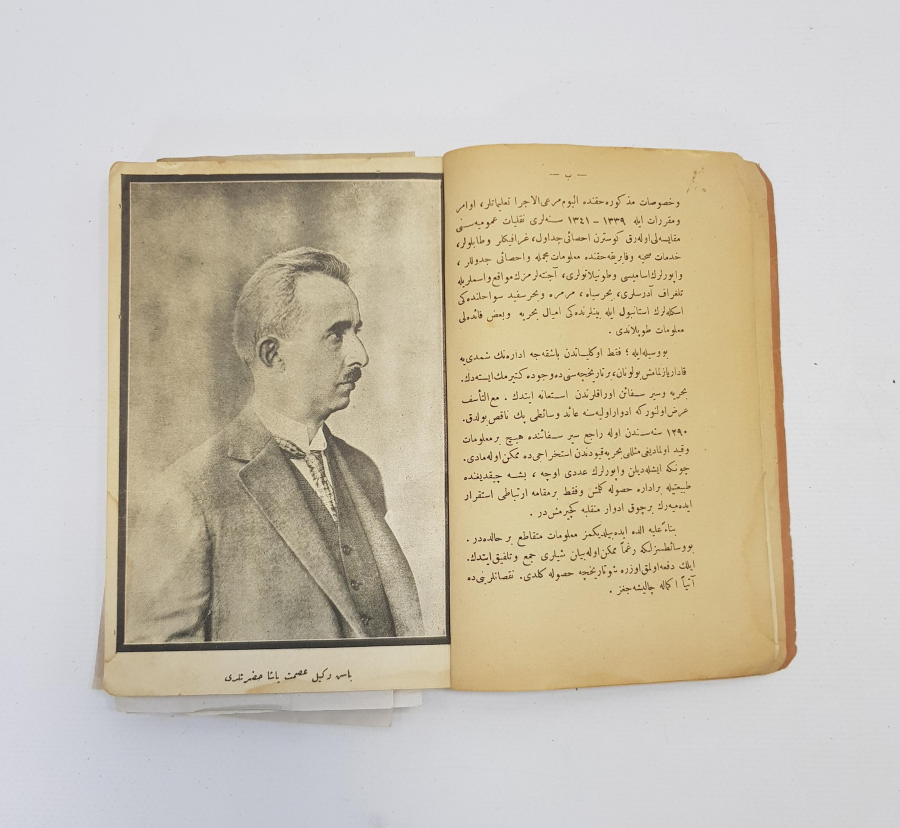 باش وكيل عصمت پاشا حضرتلری
— ب —
وخصوصات مذكوره حقنده اليوم مرعی الاجرا تعليماتلر، اوامر
ومقررات ايله ١٣٣٩ – ١٣٤١ سنه لری نقليات عموميه سنی
مقايسه لی اوله رق كوسترن احصائی جداول، غرافيكلر وطابلولر،
خدمات صحيه وفابريقه حقنده معلومات مجمله واحصائی جدوللر،
واپورلرك اساميسی وطونيلاتولری، آجنته لرمزك مواقع واسملريله
تلغراف آدرسلری، بحرسياه، مرمره وبحرسفيد سواحلنده كی
اسكله لرك استانبول ايله بينلرنده كی اميال بحريه وبعض فائده لی
معلومات طوپلاندی .
بو وسيله ايله ؛ فقط اوكلياتدن باشقه جه اداره نك شمدی يه
قادار يازلمامش بولونان، بر تاريخچه سنی ده وجوده كتيرمك ايسته دك.
بحريه وسير سفائن اوراقلرندن استعانه ايتدك . مع التأسف
عرض اولنوركه ادوار اوليه سنه عائد وسائطی پك ناقص بولدق.
١٢٩٠ سنه سندن اوله راجع سير سفائنده هيچ بر معلومات
وقيد اولماديغی مثللی بحريه قيودندن استخراجی ده ممكن اوله مادی.
چونكه ايشله ديلن واپورلرك عددی اوچه ، بشه چيقديغنده
طبيعتيله بر اداره حصوله كلمش وفقط بر مقامه ارتباطی استقرار
ايده ميه رك بر چوق ادوار منقلبه كچيرمش در .
بناءً عليه الده ايده بيلديكمز معلومات متقاطع بر حالده در .
بو وسائطسزلكه رغماً ممكن اوله بيلن شيلری جمع وتلفيق ايتدك.
ايلك دفعه اولمق اوزره شو تاريخچه حصوله كلدی. نقصانلرينی ده
آتياً اكماله چاليشه جغز .